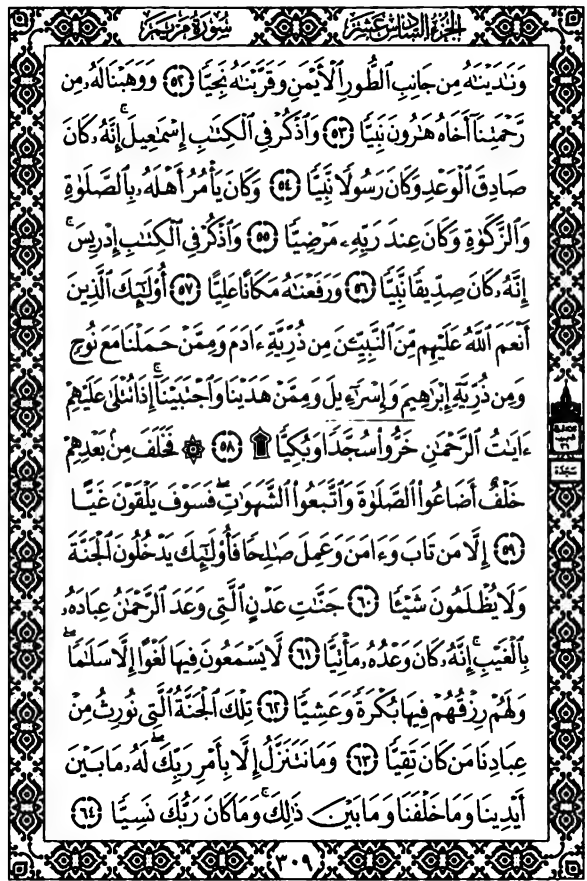 الجزء السادس عشر
سورة مريم
وَنَٰدَيْنَٰهُ مِن جَانِبِ ٱلطُّورِ ٱلْأَيْمَنِ وَقَرَّبْنَٰهُ نَجِيًّا ٥٢ وَوَهَبْنَا لَهُۥ مِن
رَّحْمَتِنَآ أَخَاهُ هَٰرُونَ نَبِيًّا ٥٣ وَٱذْكُرْ فِى ٱلْكِتَٰبِ إِسْمَٰعِيلَ ۚ إِنَّهُۥ كَانَ
صَادِقَ ٱلْوَعْدِ وَكَانَ رَسُولًا نَّبِيًّا ٥٤ وَكَانَ يَأْمُرُ أَهْلَهُۥ بِٱلصَّلَوٰةِ
وَٱلزَّكَوٰةِ وَكَانَ عِندَ رَبِّهِۦ مَرْضِيًّا ٥٥ وَٱذْكُرْ فِى ٱلْكِتَٰبِ إِدْرِيسَ ۚ
إِنَّهُۥ كَانَ صِدِّيقًا نَّبِيًّا ٥٦ وَرَفَعْنَٰهُ مَكَانًا عَلِيًّا ٥٧ أُو۟لَٰٓئِكَ ٱلَّذِينَ
أَنْعَمَ ٱللَّهُ عَلَيْهِم مِّنَ ٱلنَّبِيِّۦنَ مِن ذُرِّيَّةِ ءَادَمَ وَمِمَّنْ حَمَلْنَا مَعَ نُوحٍ
وَمِن ذُرِّيَّةِ إِبْرَٰهِيمَ وَإِسْرَٰٓءِيلَ وَمِمَّنْ هَدَيْنَا وَٱجْتَبَيْنَآ ۚ إِذَا تُتْلَىٰ عَلَيْهِمْ
ءَايَٰتُ ٱلرَّحْمَٰنِ خَرُّوا۟ سُجَّدًا وَبُكِيًّا ۩ ٥٨ ۞ فَخَلَفَ مِنۢ بَعْدِهِمْ
خَلْفٌ أَضَاعُوا۟ ٱلصَّلَوٰةَ وَٱتَّبَعُوا۟ ٱلشَّهَوَٰتِ ۖ فَسَوْفَ يَلْقَوْنَ غَيًّا
٥٩ إِلَّا مَن تَابَ وَءَامَنَ وَعَمِلَ صَٰلِحًا فَأُو۟لَٰٓئِكَ يَدْخُلُونَ ٱلْجَنَّةَ
وَلَا يُظْلَمُونَ شَيْـًٔا ٦٠ جَنَّٰتِ عَدْنٍ ٱلَّتِى وَعَدَ ٱلرَّحْمَٰنُ عِبَادَهُۥ
بِٱلْغَيْبِ ۚ إِنَّهُۥ كَانَ وَعْدُهُۥ مَأْتِيًّا ٦١ لَّا يَسْمَعُونَ فِيهَا لَغْوًا إِلَّا سَلَٰمًا ۖ
وَلَهُمْ رِزْقُهُمْ فِيهَا بُكْرَةً وَعَشِيًّا ٦٢ تِلْكَ ٱلْجَنَّةُ ٱلَّتِى نُورِثُ مِنْ
عِبَادِنَا مَن كَانَ تَقِيًّا ٦٣ وَمَا نَتَنَزَّلُ إِلَّا بِأَمْرِ رَبِّكَ ۖ لَهُۥ مَا بَيْنَ
أَيْدِينَا وَمَا خَلْفَنَا وَمَا بَيْنَ ذَٰلِكَ ۚ وَمَا كَانَ رَبُّكَ نَسِيًّا ٦٤
سجدة
٣٠٩